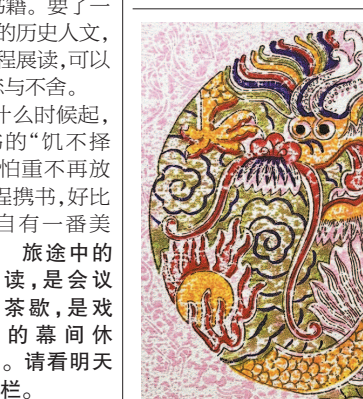 书籍。要了一
的历史人文,
程展读,可以
与不舍。
什么时候起,
的“饥不择
怕重不再放
程携书,好比
自有一番美
旅途中的
读,是会议
茶歇,是戏
的幕间休
。请看明天
栏。